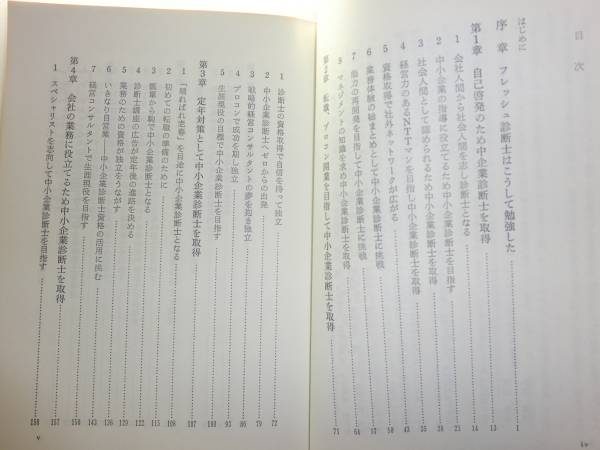 目次
はじめに
序章 フレッシュ診断士はこうして勉強した……1
第1章 自己啓発のため中小企業診断士を取得……13
1 会社人間から社会人間を志し診断士となる……14
2 中小企業の指導に役立てるため中小企業診断士を目指す……21
3 社会人間として認められるため中小企業診断士を取得……28
4 経営力のあるNTTマンを目指し中小企業診断士を取得……35
5 資格取得で社外ネットワークが広がる……43
6 業務体験の総まとめとして中小企業診断士に挑戦……50
7 能力の再開発を目指して中小企業診断士に挑戦……57
8 マネジメントの知識を求め中小企業診断士を取得……64
第2章 転業、プロコン開業を目指して中小企業診断士を取得……71
iv
1 診断士の資格取得で自信を持って独立……72
2 中小企業診断士へゼロからの出発……79
3 戦略的経営コンサルタントの夢を抱き独立……86
4 プロコンで成功を期し独立……93
5 生涯現役の目標で中小企業診断士を目指す……100
第3章 定年対策として中小企業診断士を取得……107
1 「晴ればれ老春」を目途に中小企業診断士となる……108
2 初めての転職の準備のために……115
3 瓢箪から駒で中小企業診断士となる……122
4 診断士講座の広告が定年後の進路を決める……129
5 業務のための資格が独立をうながす……136
6 いきなり自営業――中小企業診断士資格の活用に挑む……143
7 経営コンサルタントで生涯現役を目指す……150
第4章 会社の業務に役立てるため中小企業診断士を取得……157
1 スペシャリストを志向して中小企業診断士を目指す……158
v